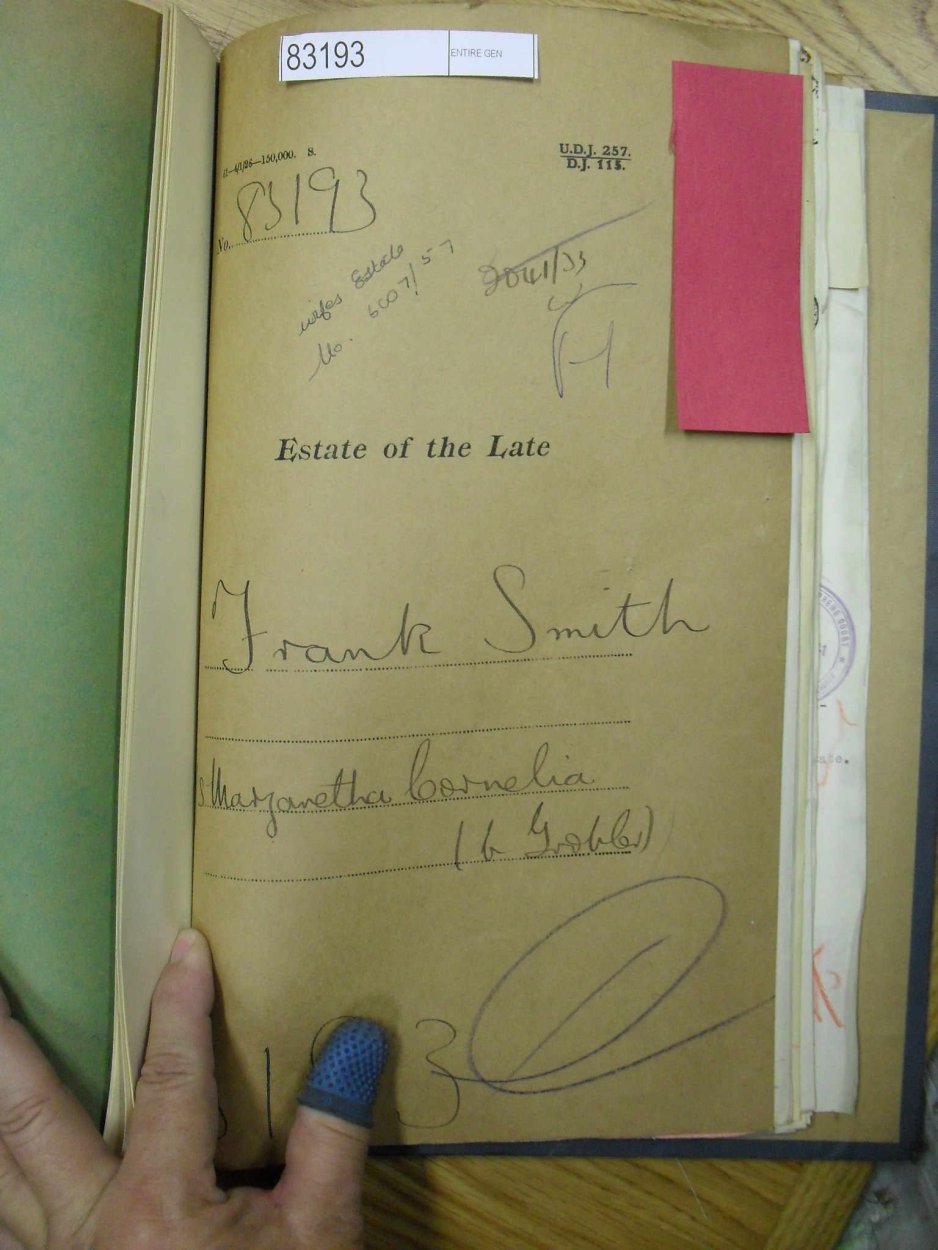 83193 ENTIRE GEN
U.D.J. 257.
D.J. 115.
No. 83193
wifes Estate
No. 6007/57
2041/33
Estate of the Late
Frank Smith
s. Margaretha Cornelia
(b Grobler)